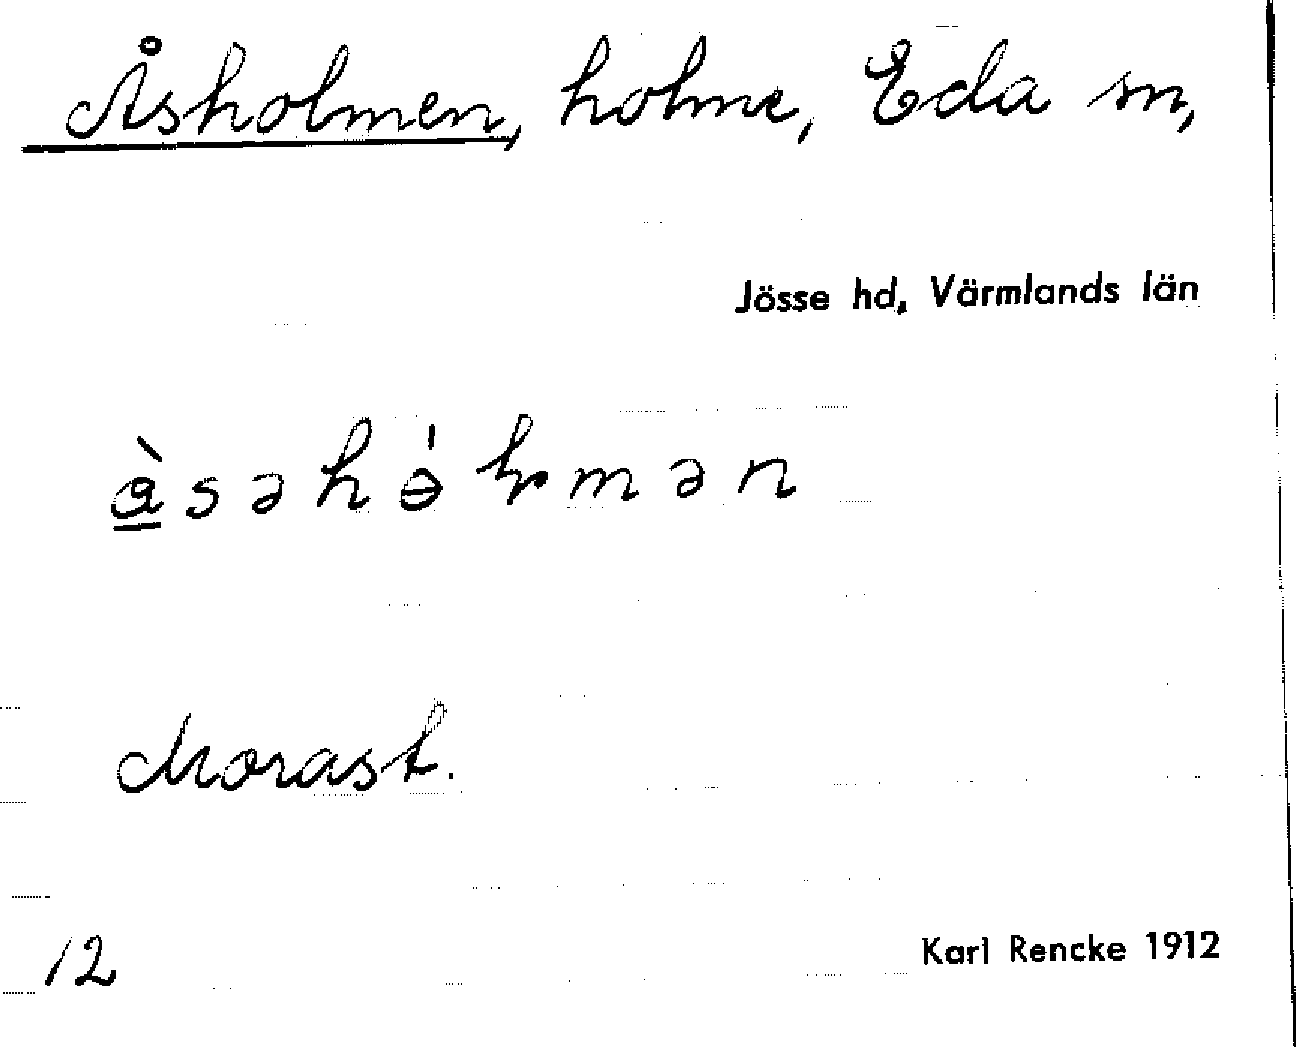 Åsholmen, holme, Eda sn,
Jösse hd, Värmlands län
Morast.
12
Karl Rencke 1912